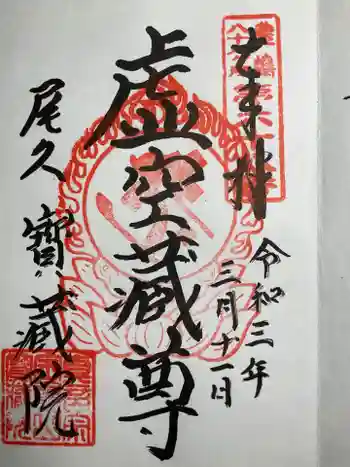 奉拝
令和三年
三月十一日
虚空蔵尊
尾久寳蔵院